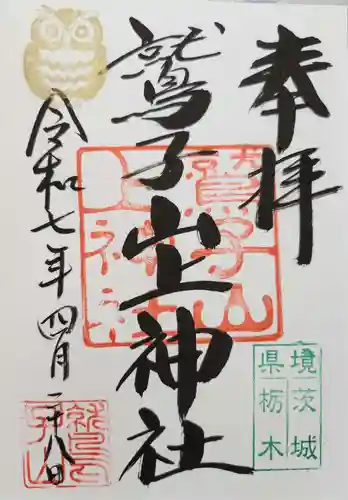 奉拝
鷲子山上神社
令和七年四月二十八日
鷲子山
上神社
境 茨城
県 栃木
鷲
子山